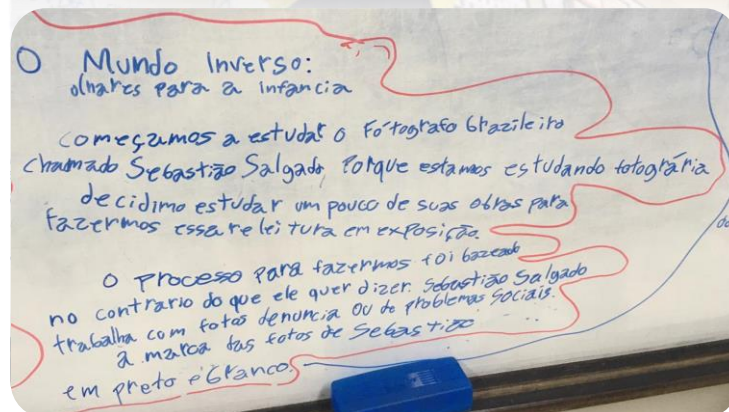 O Mundo Inverso:
olhares para a infancia
começamos a estudar o Fótografo brazileiro
chamado Sebastião Salgado, Porque estamos estudando fotográria
decidimo estudar um pouco de suas obras para
fazermos essa releitura em exposição.
O processo para fazermos foi bazeado
no contrario do que ele quer dizer. Sebastião Salgado
trabalha com fotos denuncia ou de problemas sociais.
a marca das fotos de Sebastião
em preto e branco.